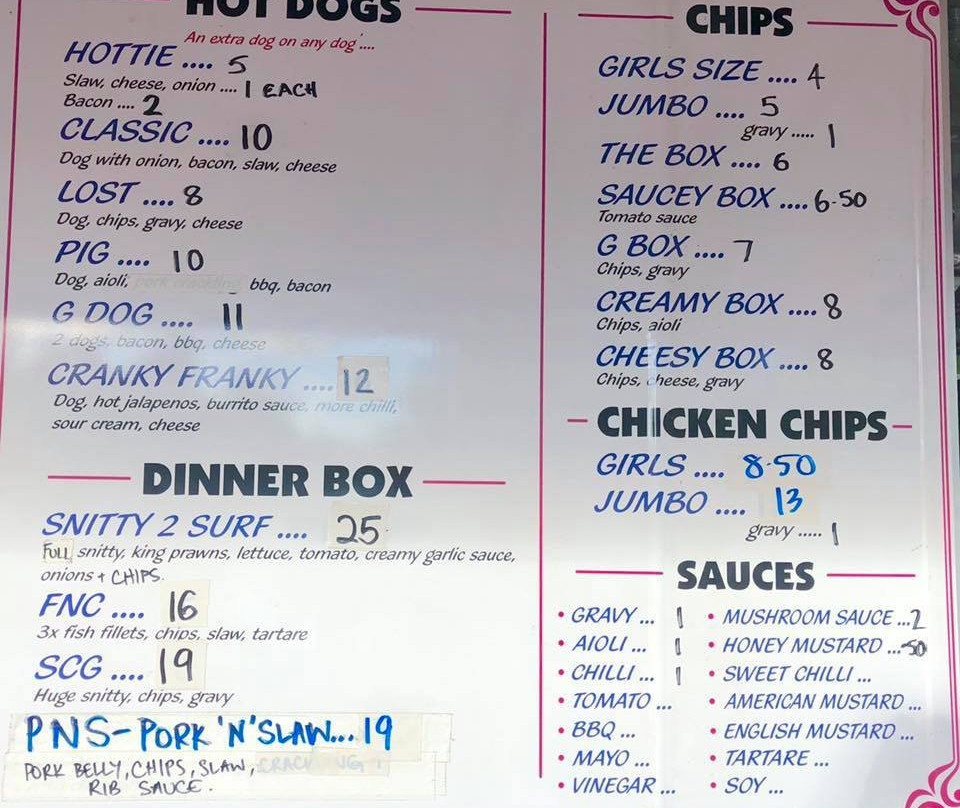 HOT DOGS
An extra dog on any dog ....
HOTTIE .... 5
Slaw, cheese, onion .... 1 EACH
Bacon .... 2
CLASSIC .... 10
Dog with onion, bacon, slaw, cheese
LOST .... 8
Dog, chips, gravy, cheese
PIG .... 10
Dog, aioli, pork crackling bbq, bacon
G DOG .... 11
2 dogs, bacon, bbq, cheese
CRANKY FRANKY .... 12
Dog, hot jalapenos, burrito sauce, more chilli,
sour cream, cheese
DINNER BOX
SNITTY 2 SURF .... 25
FULL snitty, king prawns, lettuce, tomato, creamy garlic sauce,
onions + CHIPS.
FNC .... 16
3x fish fillets, chips, slaw, tartare
SCG .... 19
Huge snitty, chips, gravy
PNS- PORK 'N' SLAW... 19
PORK BELLY, CHIPS, SLAW,
RIB SAUCE.
CHIPS
GIRLS SIZE .... 4
JUMBO .... 5
gravy ..... 1
THE BOX .... 6
SAUCEY BOX .... 6-50
Tomato sauce
G BOX .... 7
Chips, gravy
CREAMY BOX .... 8
Chips, aioli
CHEESY BOX .... 8
Chips, cheese, gravy
CHICKEN CHIPS
GIRLS .... 8-50
JUMBO .... 13
gravy ..... 1
SAUCES
• GRAVY ... 1
• AIOLI ... 1
• CHILLI ... 1
• TOMATO ...
• BBQ ...
• MAYO ...
• VINEGAR ...
• MUSHROOM SAUCE ... 2
• HONEY MUSTARD ... -50
• SWEET CHILLI ...
• AMERICAN MUSTARD ...
• ENGLISH MUSTARD ...
• TARTARE ...
• SOY ...